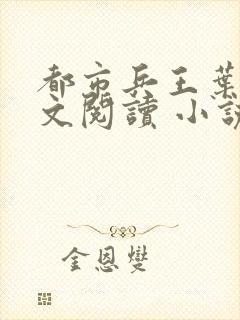 都市兵王葉
文閱讀 小說
金恩燮